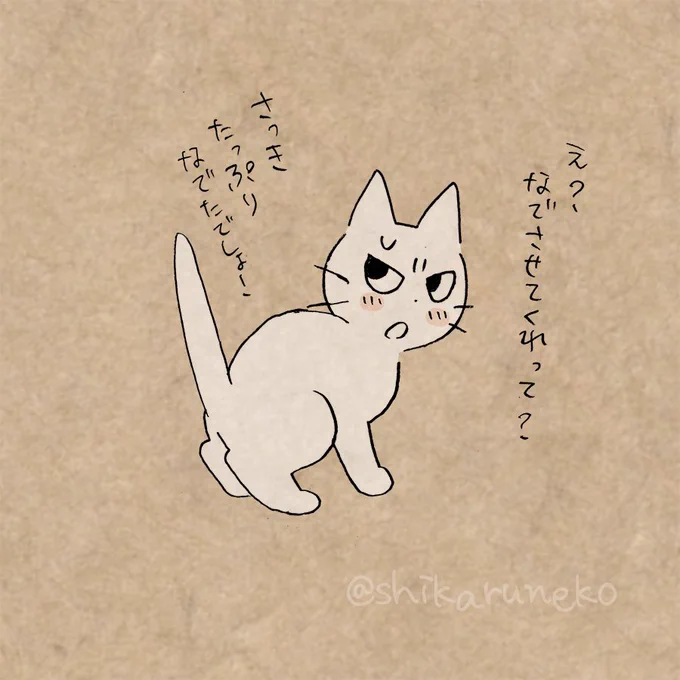 えっ、
なでさせてくれって？
さっき
たっぷり
なでたでしょー
@shikaruneko